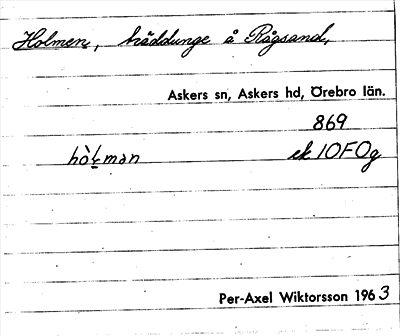 Holmen, träddunge å Rågsand,
Askers sn, Askers hd, Örebro län.
869
hòḻmən ek 10F0g
Per-Axel Wiktorsson 1963